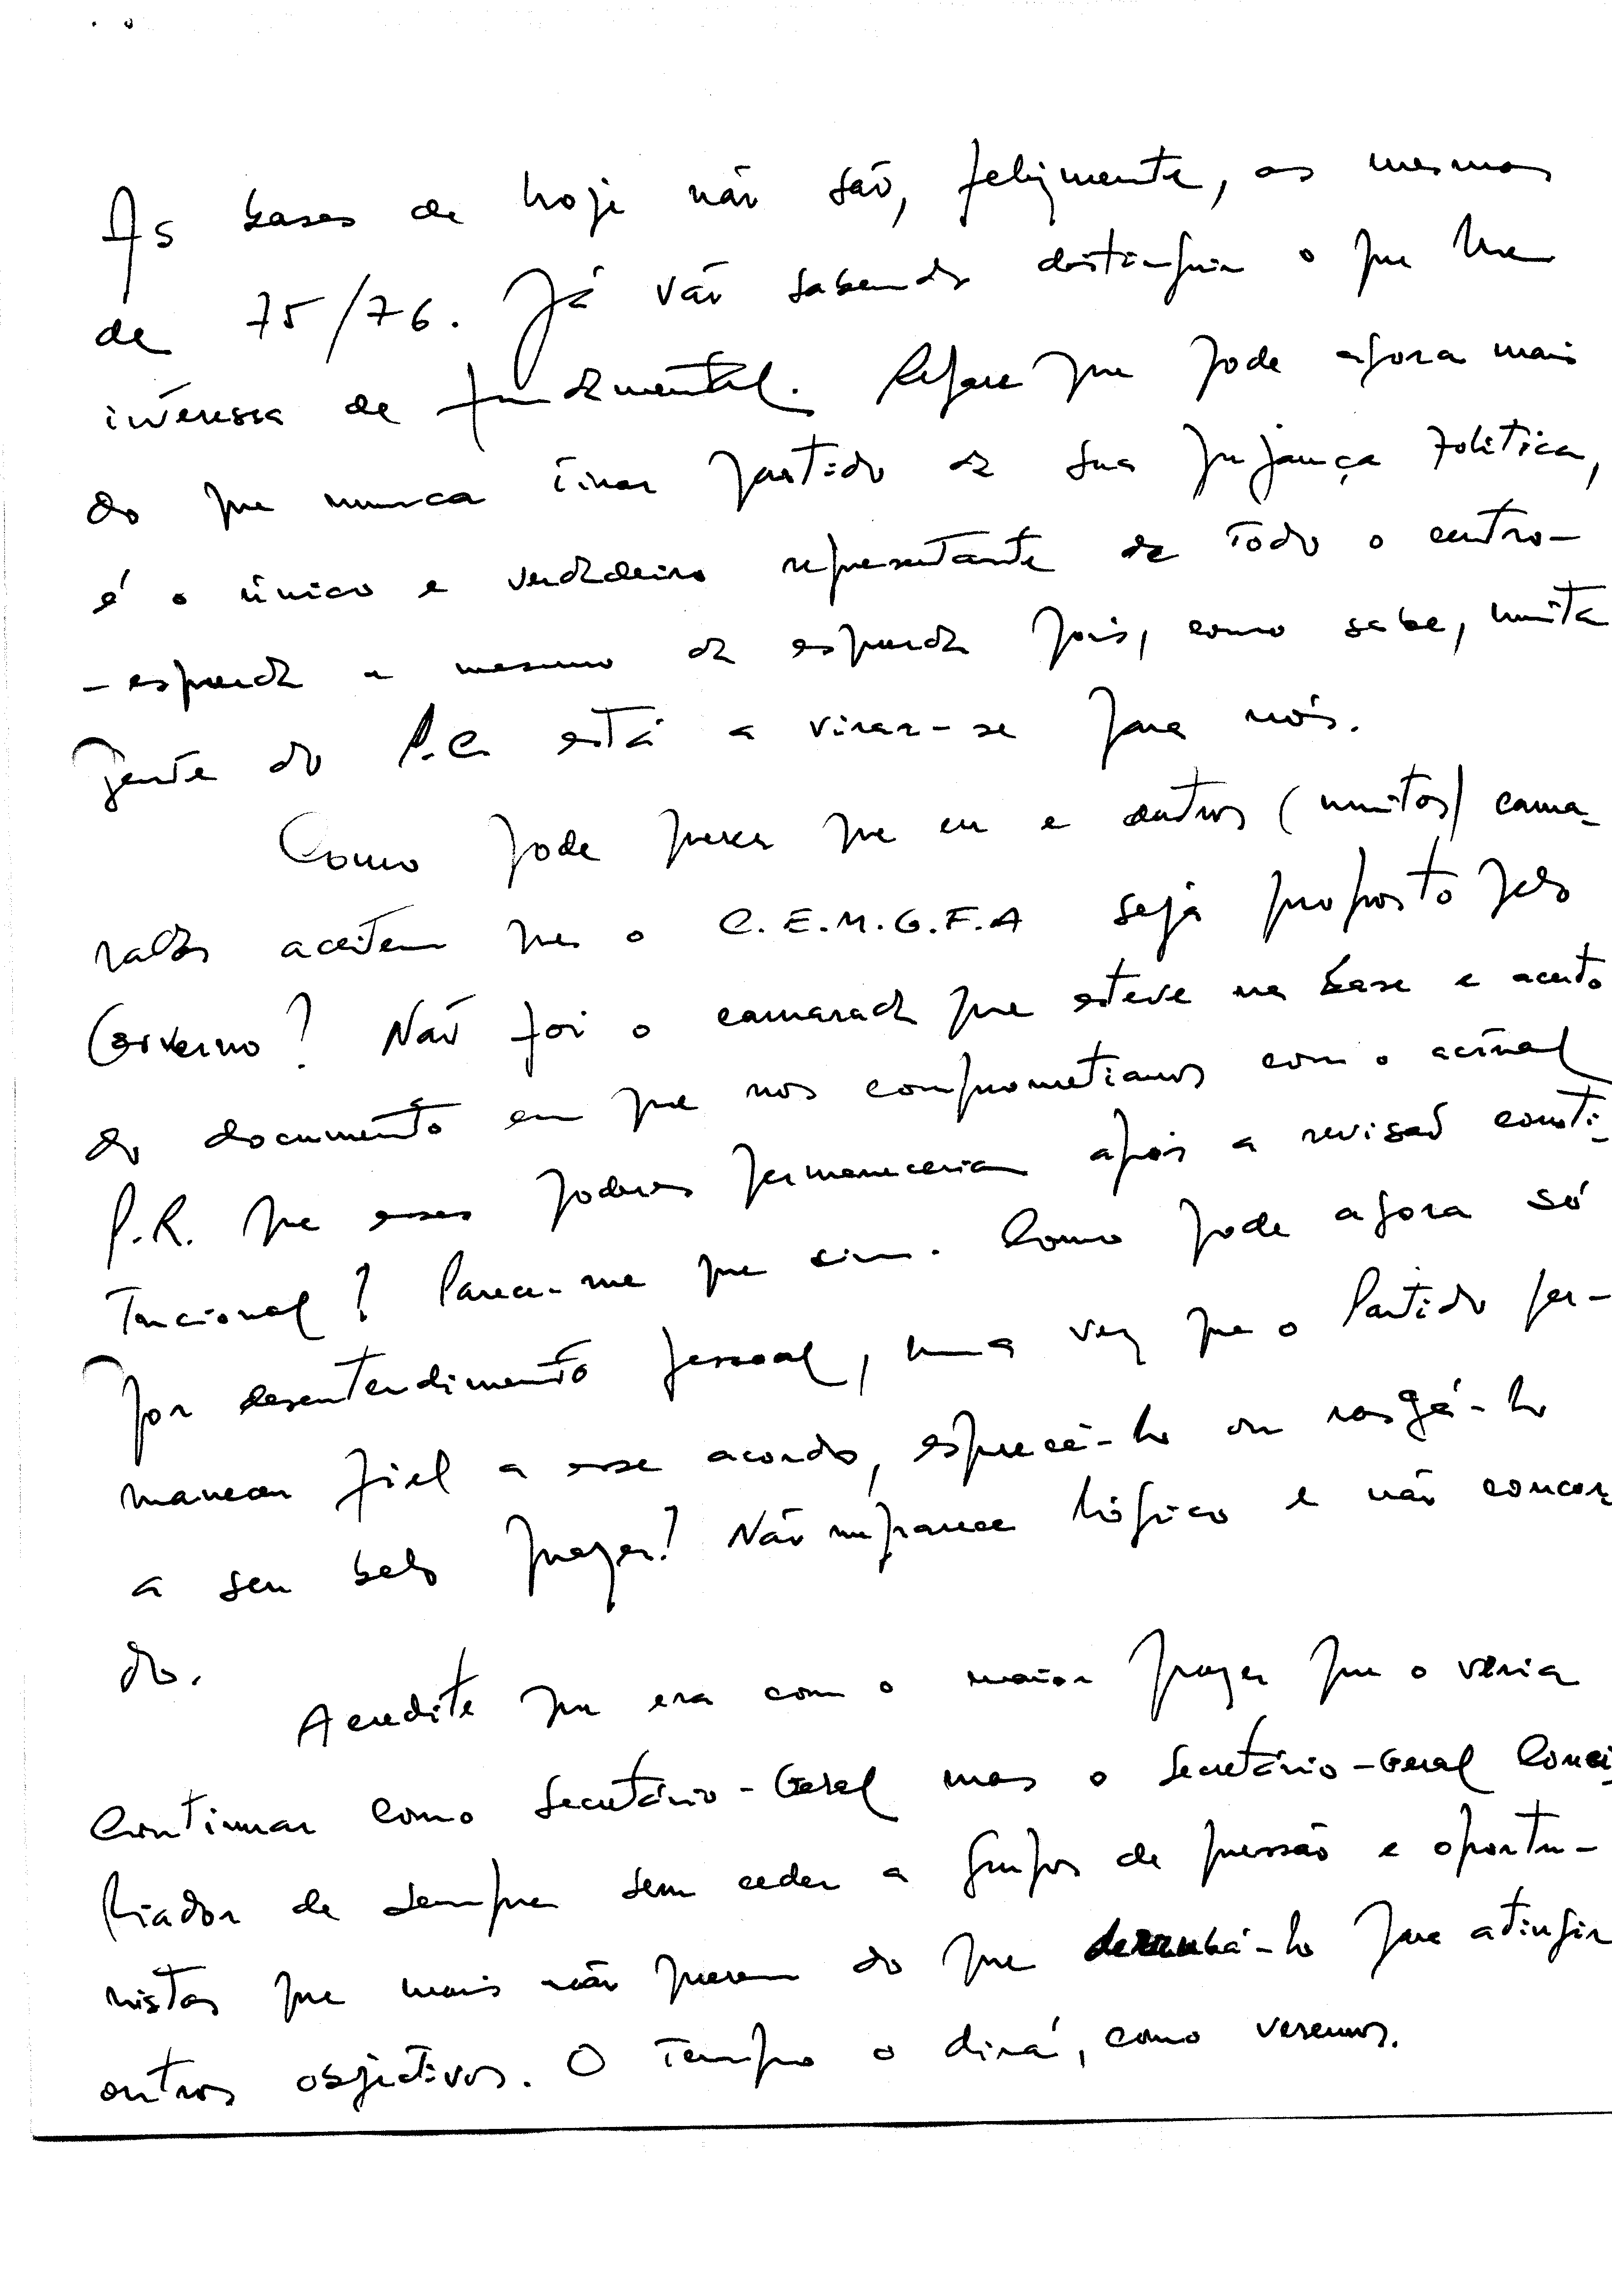 As bases de hoje não são, felizmente, as mesmas
de 75/76. Já vão sabendo distinguir o que lhe
interessa de fundamental. Repare que pode agora mais
do que nunca tirar partido da sua pujança política,
é o único e verdadeiro representante de todo o centro-
-esquerda e mesmo da esquerda pois, como sabe, muita
gente do P.C. está a virar-se para nós.
Como pode querer que eu e outros (muitos) cama-
radas aceitem que o C.E.M.G.F.A seja proposto pelo
Governo? Não foi o camarada que esteve na base e aceito
do documento em que nos comprometiamos com o actual
P.R. que esses poderes permaneceriam após a revisão consti-
tucional? Parece-me que sim. Como pode agora só
por desentendimento pessoal, uma vez que o Partido per-
maneceu fiel a esse acordo, esquecê-lo ou rasgá-lo
a seu belo prazer? Não me parece lógico e não concor
do.
Acredite que era com o maior prazer que o veria
continuar como Secretário-Geral mas o Secretário-Geral Conci-
liador de sempre sem ceder a grupos de pressão e oportu-
nistas que mais não querem do que derrubá-lo para atingir
outros objectivos. O tempo o dirá, como veremos.